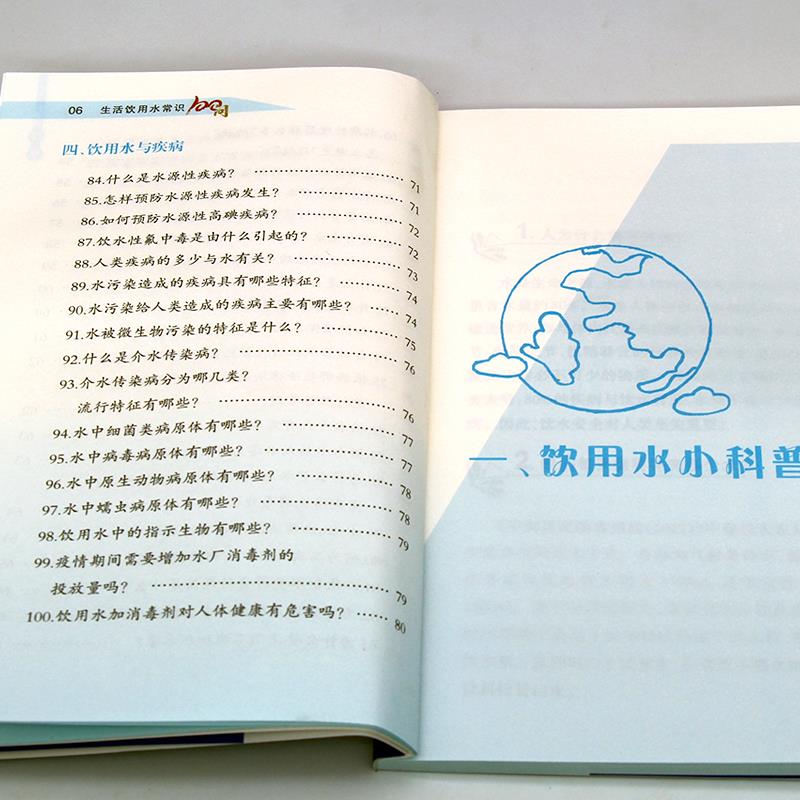 06 生活饮用水常识100问
四、饮用水与疾病
84.什么是水源性疾病? ………… 71
85.怎样预防水源性疾病发生? ………… 71
86.如何预防水源性高碘疾病? ………… 72
87.饮水性氟中毒是由什么引起的? ………… 72
88.人类疾病的多少与水有关? ………… 73
89.水污染造成的疾病具有哪些特征? ………… 74
90.水污染给人类造成的疾病主要有哪些? ………… 74
91.水被微生物污染的特征是什么? ………… 75
92.什么是介水传染病? ………… 76
93.介水传染病分为哪几类?
流行特征有哪些? ………… 76
94.水中细菌类病原体有哪些? ………… 77
95.水中病毒病原体有哪些? ………… 77
96.水中原生动物病原体有哪些? ………… 78
97.水中蠕虫病原体有哪些? ………… 78
98.饮用水中的指示生物有哪些? ………… 79
99.疫情期间需要增加水厂消毒剂的
投放量吗? ………… 79
100.饮用水加消毒剂对人体健康有危害吗? …… 80
一、饮用水小科普